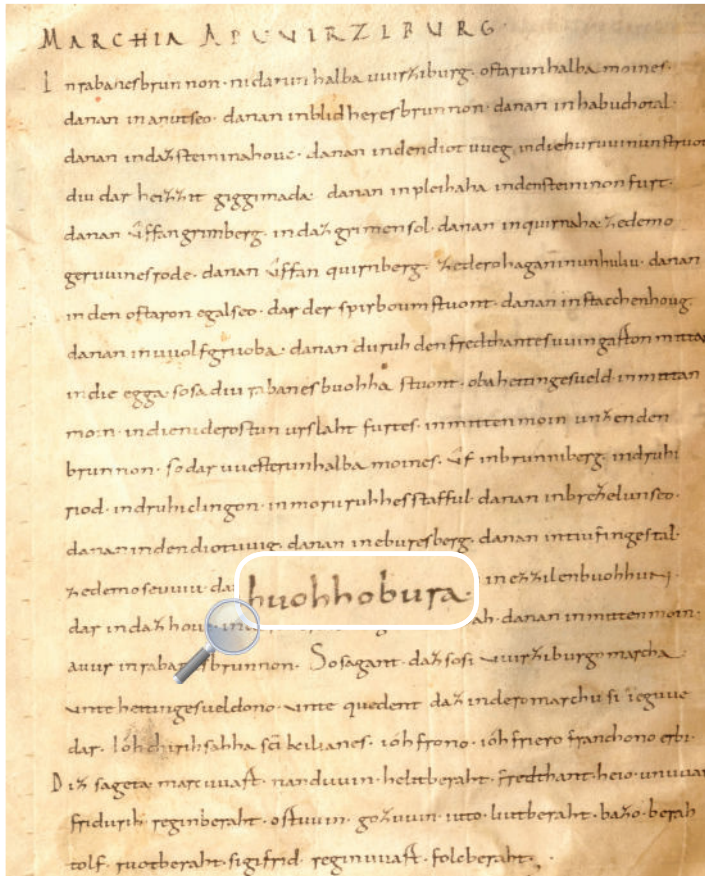 MARCHIA AD UUIRZIBURG·
In rabanesbrunnon· nidarun halba uuirziburg· ostarun halba moines·
danan in anutseo· danan in blidheresbrunnon· danan in habuchotal·
danan in daz steinina houc· danan in den diot uueg, in die huruuinun struot
diu dar heizzit giggimada· danan in pleihaha in den steininon furt·
danan ûffan grimberg· in daz grimen sol· danan in quirnaha· ze demo
geruuines rode· danan ûffan quirnberg· ze dero haganinun huliu· danan
in den ostaron egalseo· dar der spirboum stuont· danan in stacchenhoug·
danan in uuolfgruoba· danan duruh den fredthantes uuingarton mittan
in die egga· sosa diu rabanes buohha stuont· oba heitingesueld· in mittan
moin· in die niderostun urslaht furtes· in mitten moin unzen den
brunnon· so dar uuesterun halba moines· ûf in brunniberg· in druhi
riod· in druhiclingon· in moruruhhesstafful· danan in brezelunseo·
danan in den diotuuig· danan in eburesberg· danan in tiufingestal·
ze demo seuuiu· da huohhobura· in ezzilenbuohhun·
dar in daz houc· in ah· danan in mitten moin·
auur in rabanesbrunnon· So sagant· daz so si uuirziburgo marcha
unte heitingesueldono· unte quedent daz in dero marchu si ieguue
dar· ióh chirihsahha sc̄i kilianes· ióh frono· ióh friero franchono erbi·
Diz sageta· marcuuart· nanduuin· helitberaht· fredthant· heio· unuuan
fridurih· reginberaht· ortuuin· gozuuin· iuto· liutberaht· bazo· berah
tolf· ruotberaht· sigifrid· reginuuart· folcberaht·